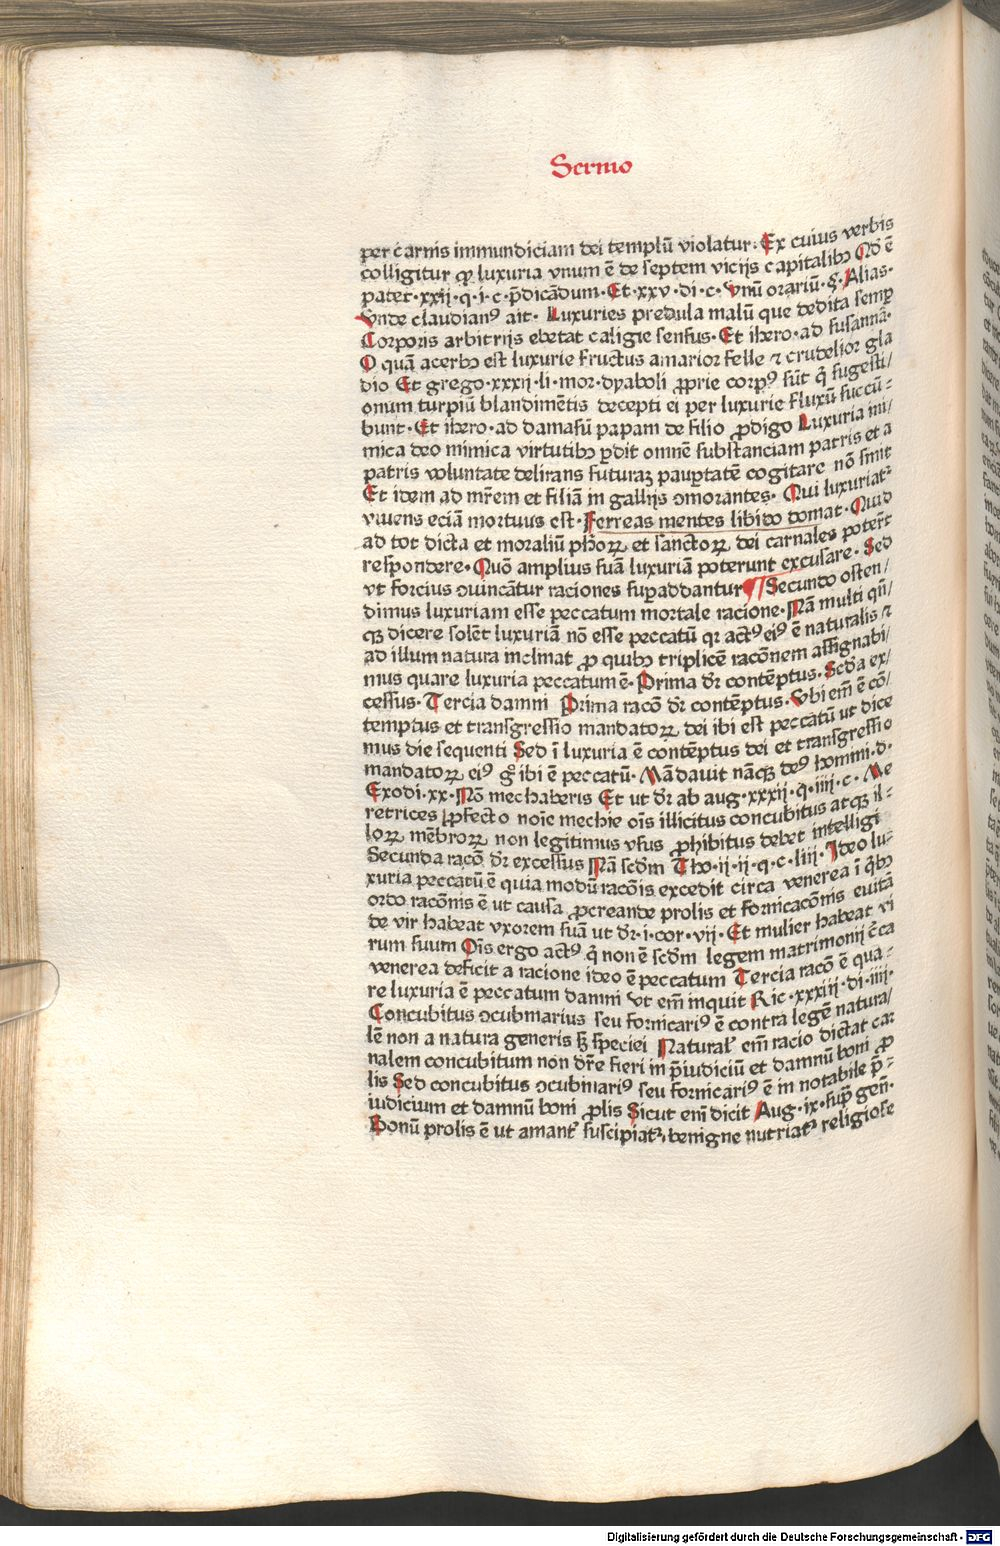 Sermo
per carnis immundiciam dei templū violatur. Ex cuius verbis
colligitur ꝙ luxuria vnum ē de septem vicijs capitalibꝫ Qd' ē
patet.xxij.q.i.c.p̄dicādum.Et.xxv.di.c.vnū orariū.§.Alias.
Vnde claudian⁹ ait. Luxuries predula malū que dedita semꝑ
Corporis arbitrijs ebetat caligie sensus. Et ihero.ad susannā.
O quā acerbꝫ est luxurie fructus amarior felle ⁊ crudelior gla
dio Et grego.xxxij.li.mor.dyaboli ꝓprie corp⁹ sūt q̄ sugesti/
onum turpiū blandimētis decepti ei per luxurie fluxū succū-
bunt.Et ihero.ad damasū papam de filio ꝓdigo Luxuria ini/
mica deo inimica virtutibꝫ ꝑdit omnē substanciam patris et a
patris voluntate delirans futuraꝫ pauꝑtatē cogitare nō sinit
Et idem ad mr̄em et filiā in gallijs ꝯmorantes. Qui luxuriat᷑
viuens eciā mortuus est. Ferreas mentes libido domat. Quid
ad tot dicta et moraliū ph̄oꝝ et sanctoꝝ dei carnales poter̄t
respondere. Quō amplius suā luxuriā poterunt excusare. Sed
vt forcius ꝯuincātur raciones suꝑaddantur ¶ Secundo osten/
dimus luxuriam esse peccatum mortale racione. Nā multi qn̄/
qꝫ dicere solēt luxuriā nō esse peccatū qꝛ act⁹ ei⁹ ē naturalis ⁊
ad illum natura inclinat ꝓ quibꝫ triplicē racōnem assignabi/
mus quare luxuria peccatum ē. Prima dr̄ contēptus. Scd'a ex/
cessus. Tercia damni Prima racō dr̄ contēptus. Vbi em̄ ē cō/
temptus et transgressio mandatoꝝ dei ibi est peccatū ut dice
mus die sequenti Sed ī luxuria ē contēptus dei et transgressio
mandatoꝝ ei⁹ gͦ ibi ē peccatū. Mādauit nāqꝫ de⁹ homini.d.
Exodi.xx. Nō mechaberis Et ut dr̄ ab aug.xxxij.q.iiij.c. Me
retrices ꝓfecto noīe mechie oīs illicitus concubitus atqꝫ il-
loꝝ mēbroꝝ non legitimus vsus ꝓhibitus debet intelligi
Secunda racō dr̄ excessus Nā scd'm Tho.ij.ij.q.c.liij. Ideo lu-
xuria peccatū ē quia modū racōis excedit circa venerea ī qͥbꝫ
ordo racōnis ē ut causa ꝓcreande prolis et fornicacōnis euitā
de vir habeat vxorem suā ut dr̄.i.cor.vij. Et mulier habeat vi
rum suum Oīs ergo act⁹ q̄ non ē scd'm legem matrimonij c̄ca
venerea deficit a racione ideo ē peccatum Tercia racō ē qua-
re luxuria ē peccatum damni Vt em̄ inquit Ric.xxxiij.di.iiij.
Concubitus ꝯcubinarius seu fornicari⁹ ē contra legē natura/
lē non a natura generis sꝫ speciei Natural' em̄ racio dictat car
nalem concubitum non dr̄e fieri in p̄iudiciū et damnū boni ꝓ
lis Sed concubitus ꝯcubinari⁹ seu fornicari⁹ ē in notabile p̄-
iudicium et damnū boni ꝓlis Sicut em̄ dicit Aug.ix.suꝑ gen̄.
Bonū prolis ē ut amant᷑ suscipiat᷑, benigne nutriat᷑ religiose
Digitalisierung gefördert durch die Deutsche Forschungsgemeinschaft - DFG